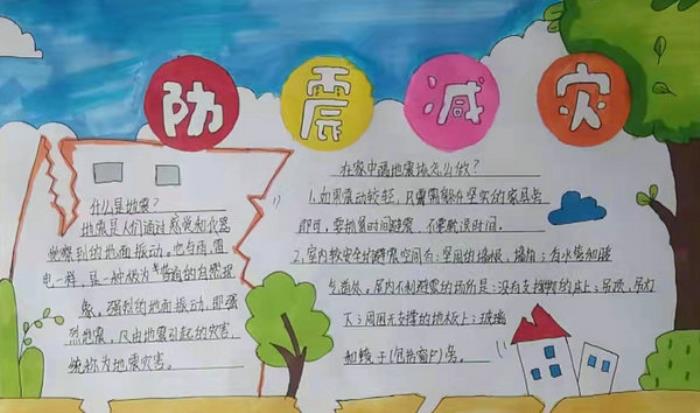 防震减灾
什么是地震?
地震是人们通过感觉和仪器
觉察到的地面振动。也与雨、雷
电一样,是一种极为普遍的自然现
象。强烈的地面振动,即强
烈地震,及由地震引起的灾害,
统称为地震灾害。
在家中遇地震该怎么做?
1.如果震动较轻,只需需躲在坚实的家具旁
即可,要抓紧时间避震,不要耽误时间。
2.室内较安全的避震空间有:坚固的墙根、墙角;有水管和暖
气道处。屋内不利避震的场所是:没有支撑物的床上;吊顶、吊灯
下;周围无支撑的地板上;玻璃
和镜子(包括窗户)旁。